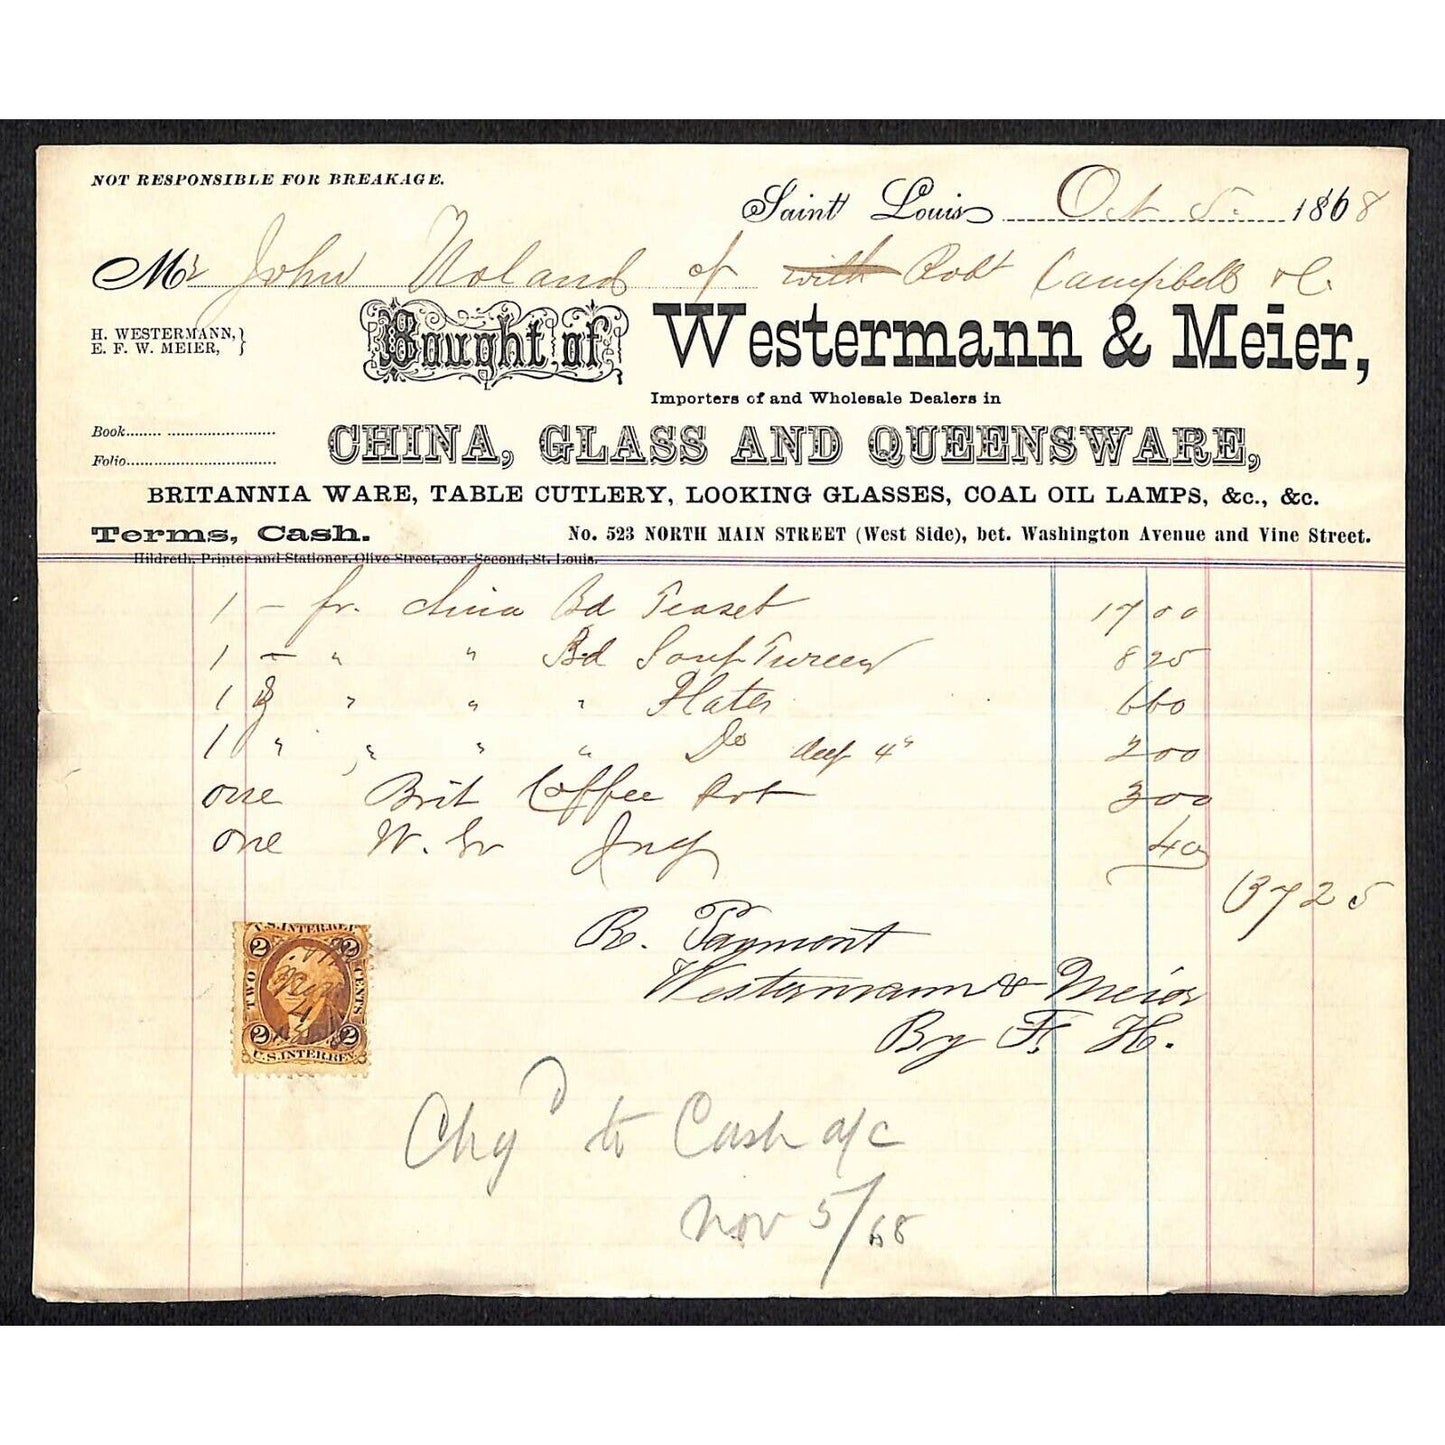 NOT RESPONSIBLE FOR BREAKAGE.
Saint Louis Oct 5. 1868
Mr John Noland of with Robt Campbell & Co.
H. WESTERMANN,
E. F. W. MEIER,
Bought of Westermann & Meier,
Importers of and Wholesale Dealers in
Book
CHINA, GLASS AND QUEENSWARE,
Folio
BRITANNIA WARE, TABLE CUTLERY, LOOKING GLASSES, COAL OIL LAMPS, &c., &c.
Terms, Cash. No. 523 NORTH MAIN STREET (West Side), bet. Washington Avenue and Vine Street.
Hildreth, Printer and Stationer, Olive Street, cor. Second, St. Louis.
1 - fr. China Bd Teaset 17 00
1 - " " Bd Soup Tureen 8 25
1 " " " Plates 6 60
1 " " " " Do deep 4" 2 00
one Brit Coffee Pot 3 00
one W. Gr Jug 40
37 25
R. Payment
Westermann & Meier
By F. H.
U.S. INTER. REV.
2 2
TWO CENTS
2 2
U.S. INTER. REV.
Chgd to Cash a/c
Nov 5/68